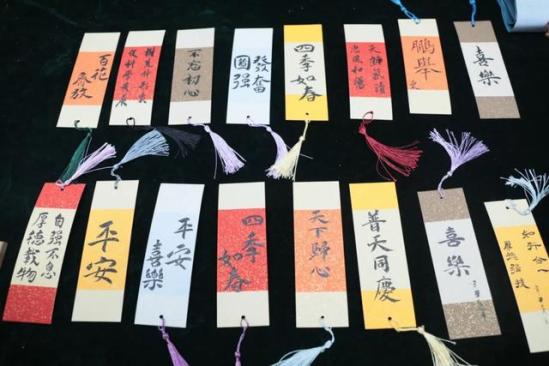 百花
齐放
不忘初心
發奮
圖强
四季如春
天朗氣清
惠風和暢
鵬舉
喜樂
自强不息
厚德載物
平安
平安
喜樂
四季
如春
天下歸心
普天同慶
喜樂
知行合一